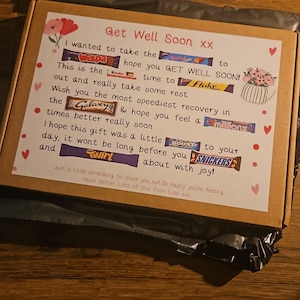 Get Well Soon xx
I wanted to take the
to
Wispa hope you GET WELL SOON!
This is the Kinder time to Flake
out and really take some rest
Wish you the most speediest recovery in
the Galaxy & hope you feel a millions
times better really soon
I hope this gift was a little BOOST to your
day, it won't be long before you SNICKERS
and Twirl about with joy!
Just a little something to cheer you up! So happy you're feeling
much better